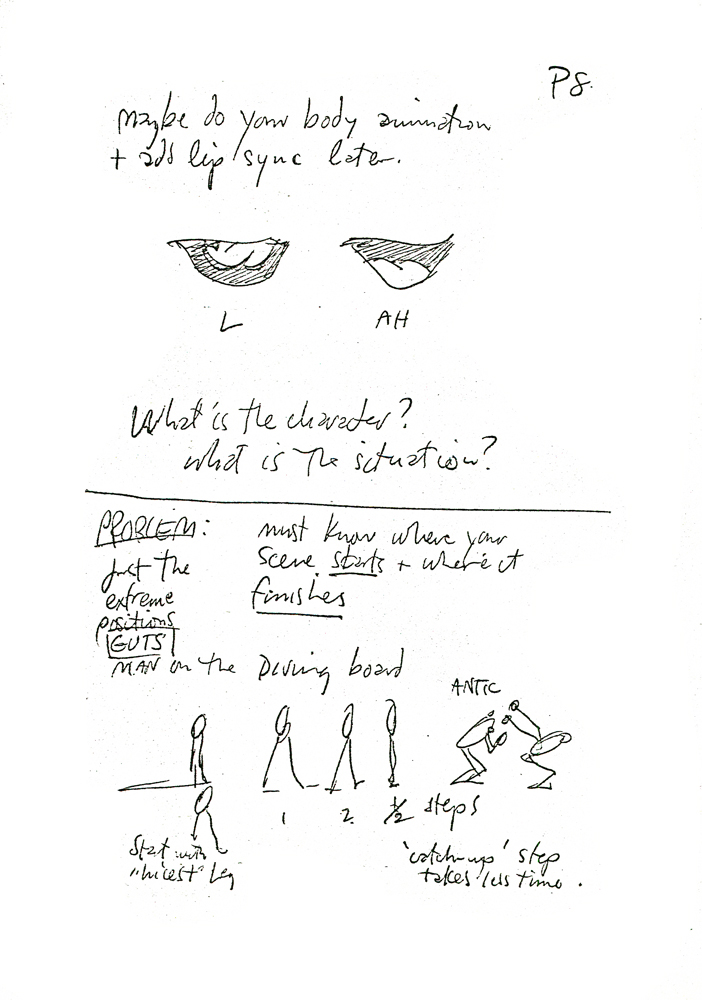 P8.
maybe do your body animation
+ add lip sync later.
L
AH
What is the character?
what is the situation?
PROBLEM:
just the
extreme
positions
GUTS
must know where your
scene starts + where it
finishes
MAN on the Diving board
ANTIC
1
2
1/2 steps
Start with
"nicest" leg
'catch-up' step
takes less time.